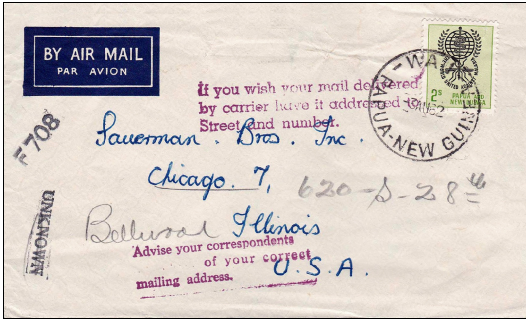 BY AIR MAIL
PAR AVION
If you wish your mail delivered
by carrier have it addressed to
Street and number.
2s
PAPUA AND
NEW GUINEA
PAPUA-NEW GUIN
F708
Sauerman. Bros. Inc.
Chicago. 7,
620-S-28th
UNKNOWN
Bellwood Illinois
Advise your correspondents
of your correct
mailing address.
U.S.A.